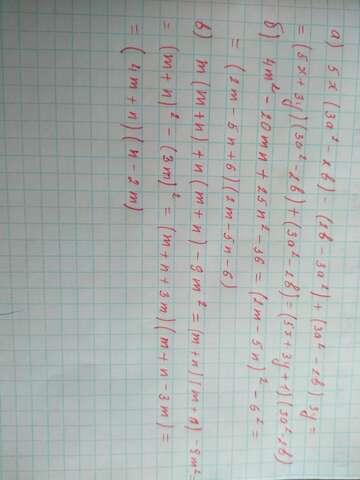 а) 5x(3a²-2b)-(2b-3a²)+(3a²-2b)3y=
=(5x+3y)(3a²-2b)+(3a²-2b)=(5x+3y+1)(3a²-2b)
б) 4m²-20mn+25n²-36=(2m-5n)²-6²=
=(2m-5n+6)(2m-5n-6)
в) m(m+n)+n(m+n)-9m²=(m+n)(m+n)-9m²=
=(m+n)²-(3m)²=(m+n+3m)(m+n-3m)=
=(4m+n)(n-2m)